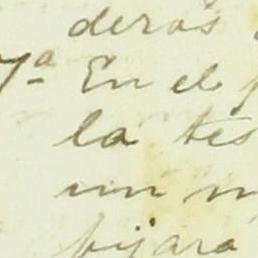 deros
7ª En el
la tes
un m
fijara